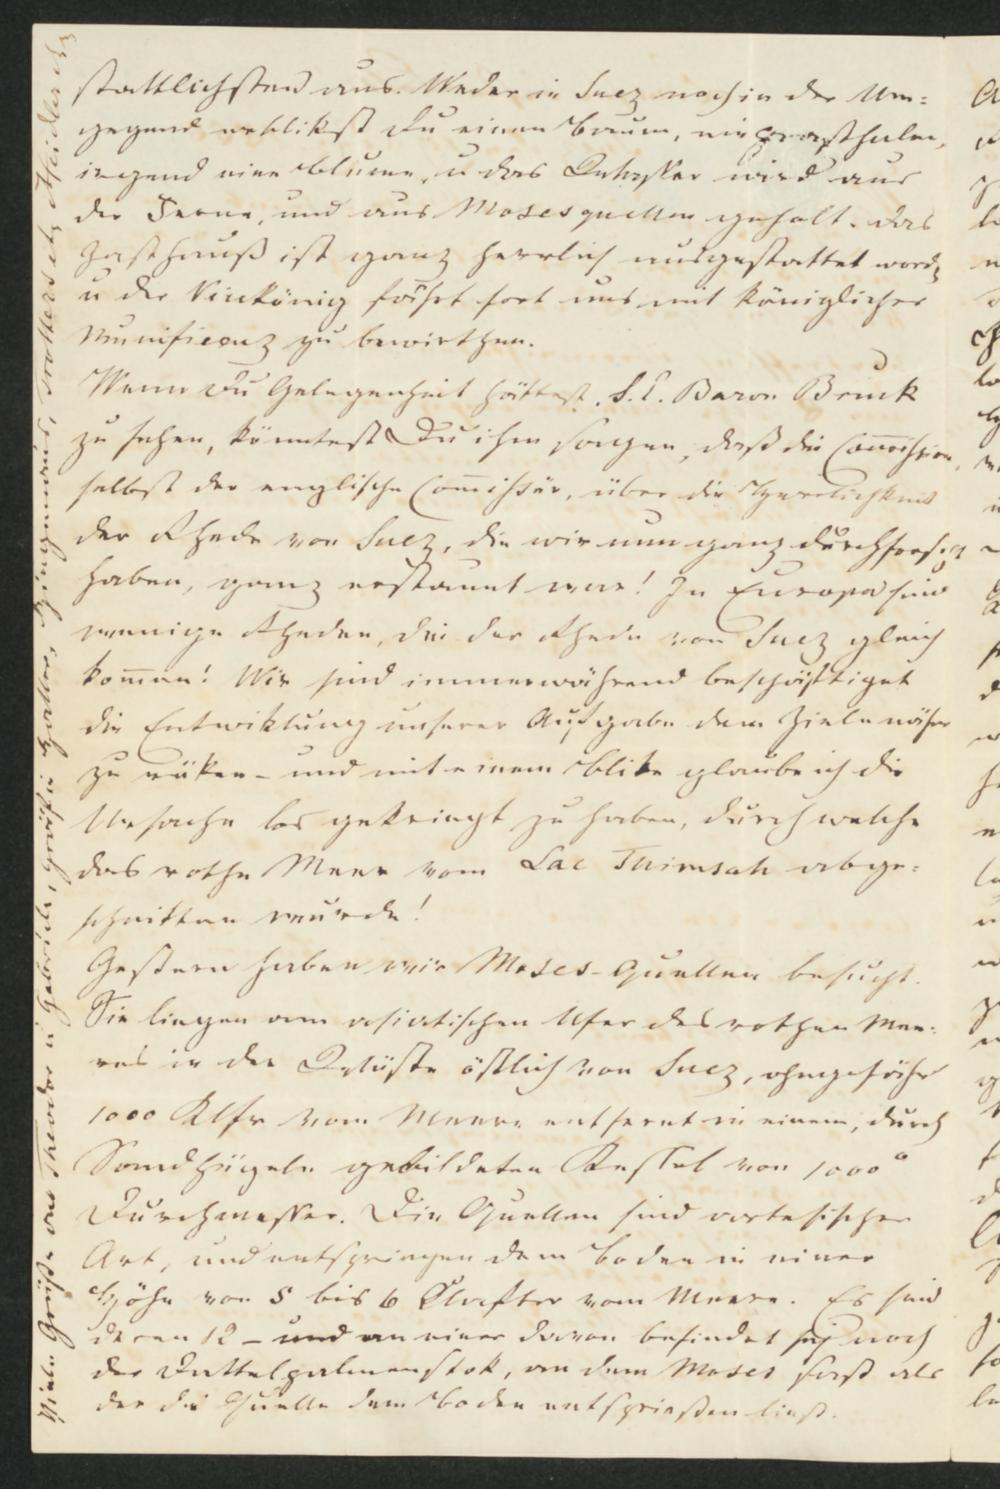 stattlichsten aus. Weder in Suez noch in der Um=
gegend erblikst Du einen Baum, ein Grashalm,
irgend eine Blume, u das Trinkwasser wird aus
der Ferne, und aus Mosesquellen geholt. Das
Gasthauß ist ganz herrlich ausgestattet word
u der Vicekönig fährt fort uns mit königlicher
Munificenz zu bewirthen.
Wenn Du Gelegenheit hättest, S.E. Baron Bruck
zu sehen, könntest Du ihm sagen, daß die Com̅ission,
selbst der englische Com̅issär, über die Herrlichkeit
der Rhede von Suez, die wir nun ganz durchforscht
haben, ganz erstaunt war! In Europa sind
wenige Rheden, die der Rhede von Suez gleich
kom̅en! Wir sind immerwährend beschäftiget
die Entwiklung unserer Aufgabe dem Ziele näher
zu rüken – und mit einem Blike glaube ich die
Ursache los gekriegt zu haben, durch welche
das rothe Meer vom Lac Thimsah abge=
schnitten wurde!
Gestern haben wir Moses-Quellen besucht.
Sie liegen am asiatischen Ufer des rothen Mee=
res in der Wüste östlich von Suez, ohngefähr
1000 Klftr vom Meere entfernt in einem, durch
Sandhügeln gebildeten Kessel von 1000°
Durchmesser. Die Quellen sind artesischer
Art, und entspringen dem Boden in einer
Höhe von 5 bis 6 Klafter vom Meere. Es sind
deren 12 – und an einer davon befindet sich noch
der Dattelpalmenstok, an dem Moses saß als
der die Quelle dem Boden entsprießen ließ.
Viele Grüße an Theodor u Gabriele, Gräfin